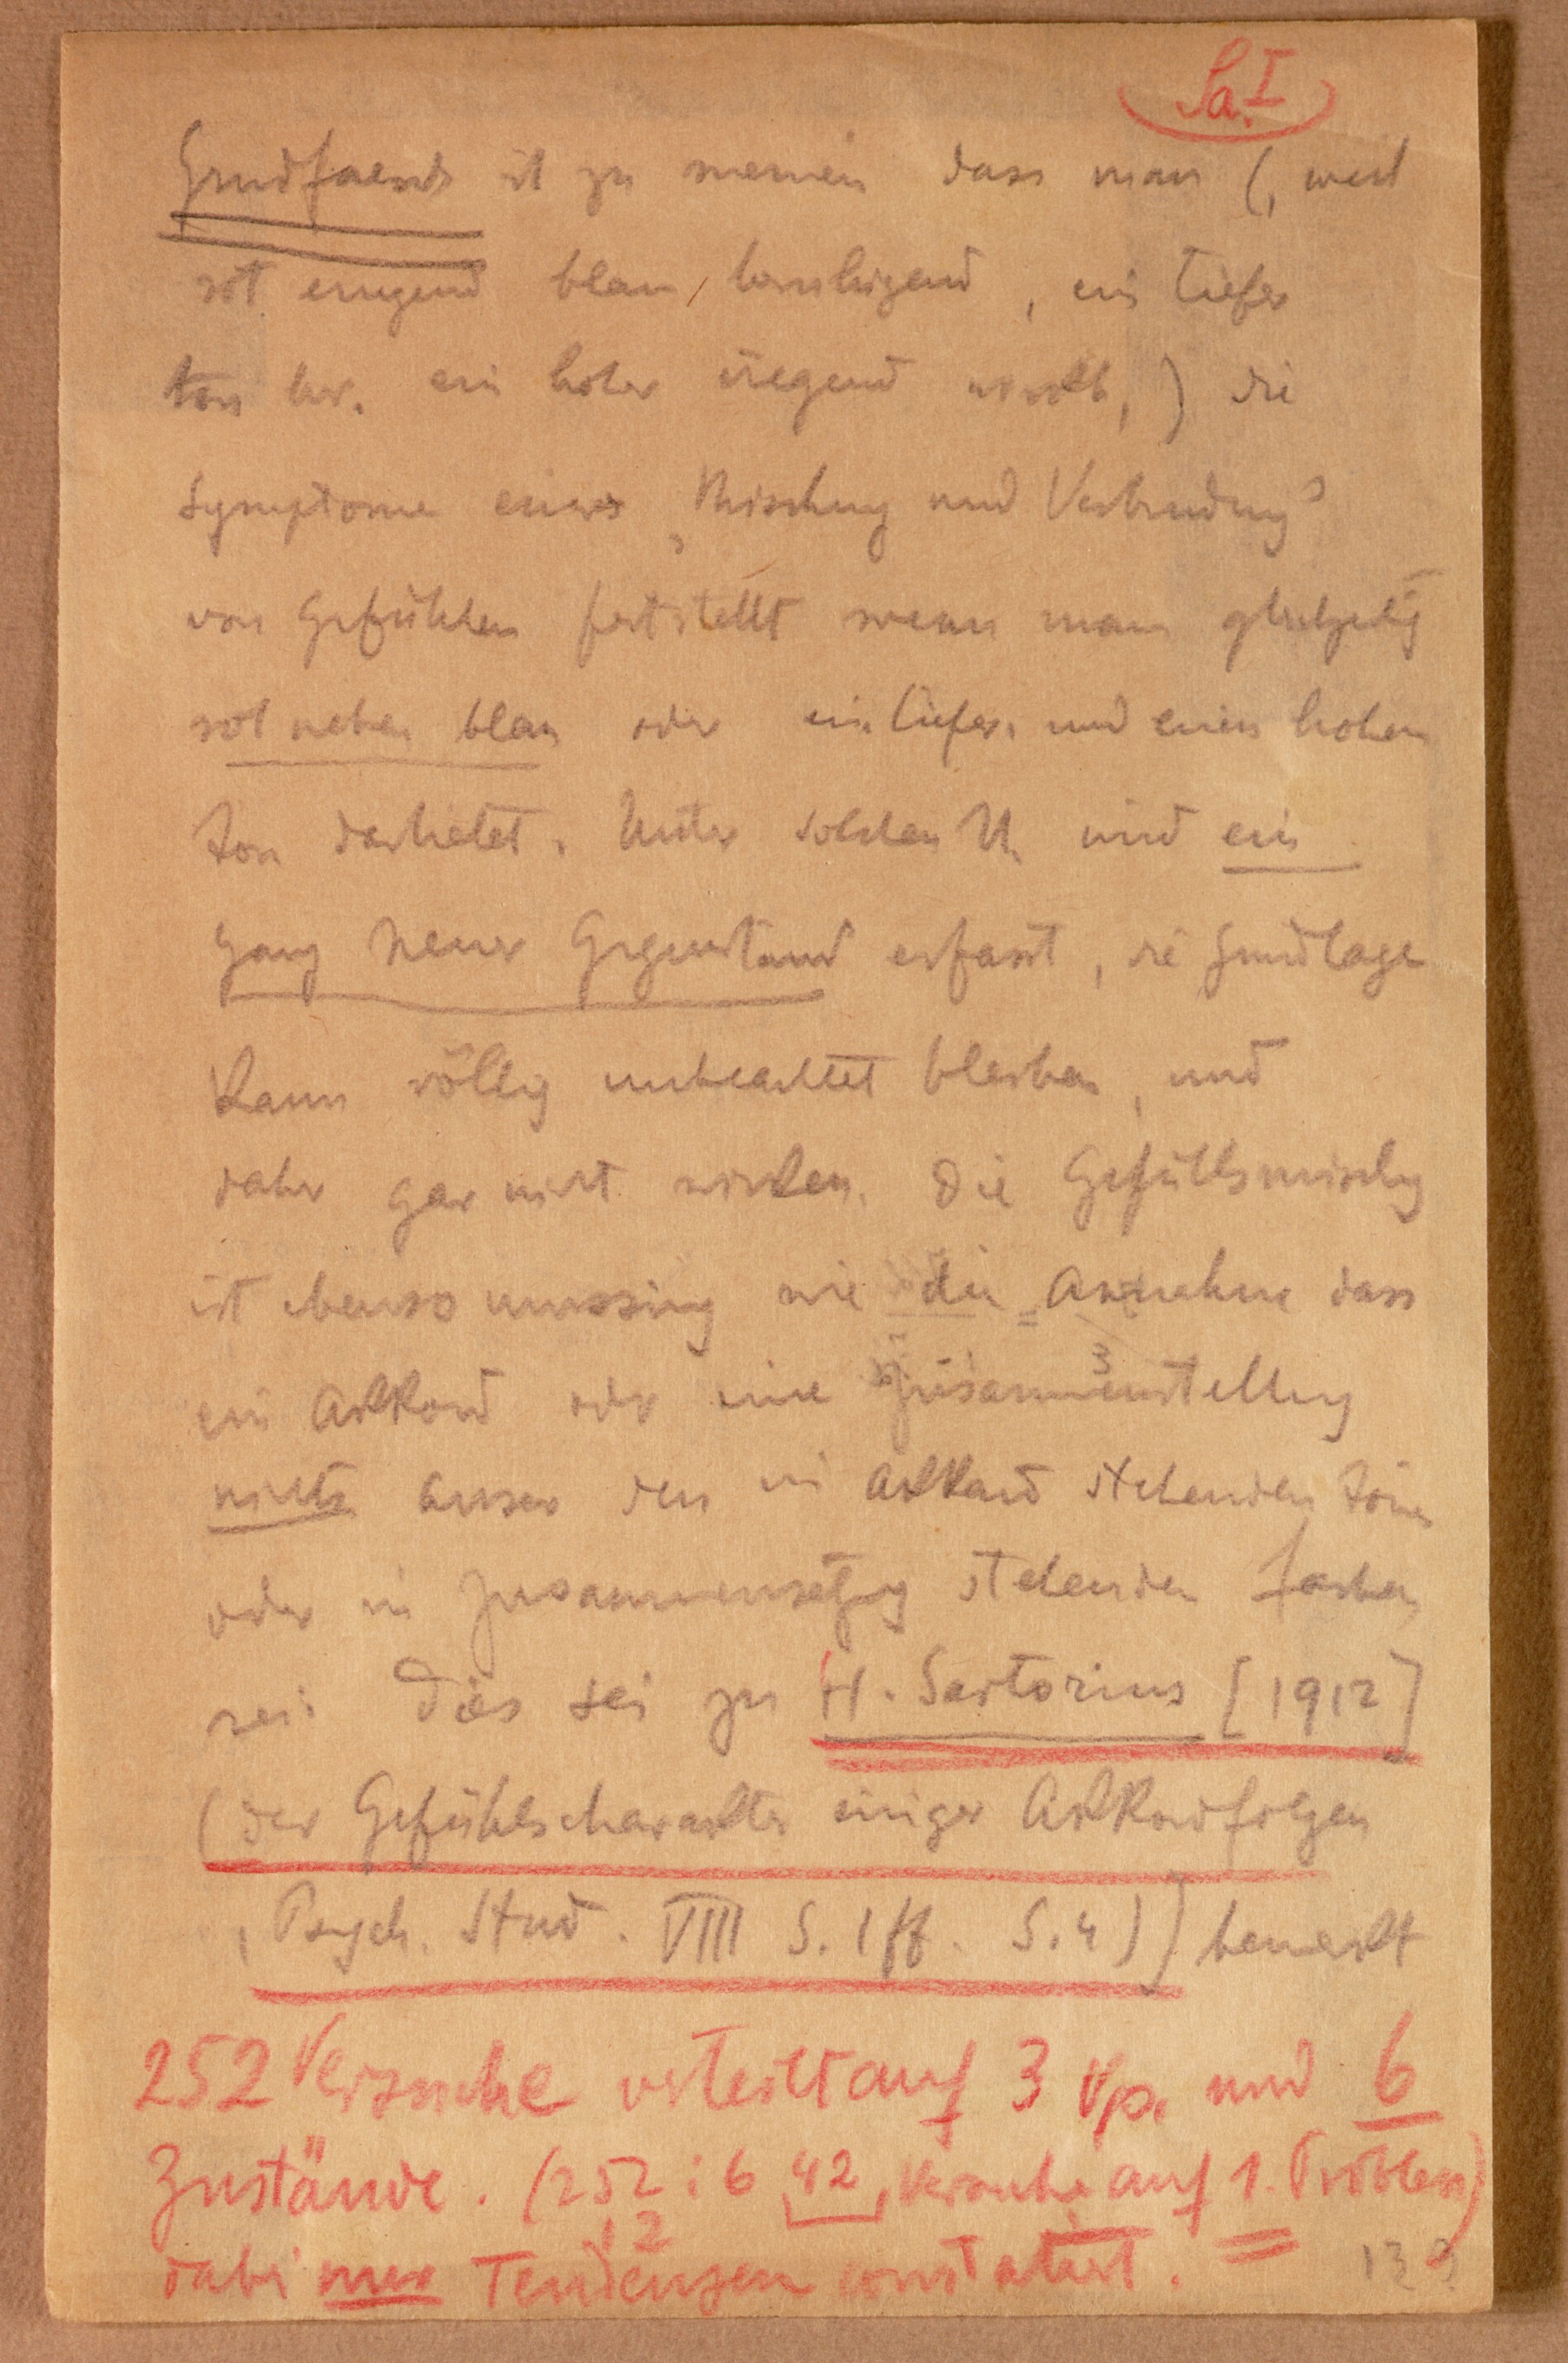 Sa. I
Grundfalsch ist zu meinen dass man (, weil
rot erregend blau beruhigend, ein tiefer
Ton ber. ein hoher erregend wirkt,) die
Symptome einer „Mischung und Verbindung"
von Gefühlen feststellt wenn man gleichzeitig
rot neben blau oder ein. tiefen und einen hohen
Ton darbietet. Unter solchen U. wird ein
ganz neuer Gegenstand erfasst, die Grundlage
kann völlig unbeachtet bleiben, und
daher gar nicht wirken. Die Gefühlsmischg
ist ebenso unsinnig wie die Annahme dass
ein Akkord oder eine Zusammenstellung
nichts ausser den im Akkord stehenden Tönen
oder in Zusammensetzg stehenden Farben
sei. Dies sei zu H. Sartorius [1912]
(der Gefühlscharakter einiger Akkordfolgen
, Psych. Stud. VIII S. 1 ff. S. 4)] bemerkt
252 Versuche verteilt auf 3 Vp. und 6
Zustände. (252 : 6 42 Versuche auf 1. Problem)
12
dabei nur Tendenzen constatiert.
139